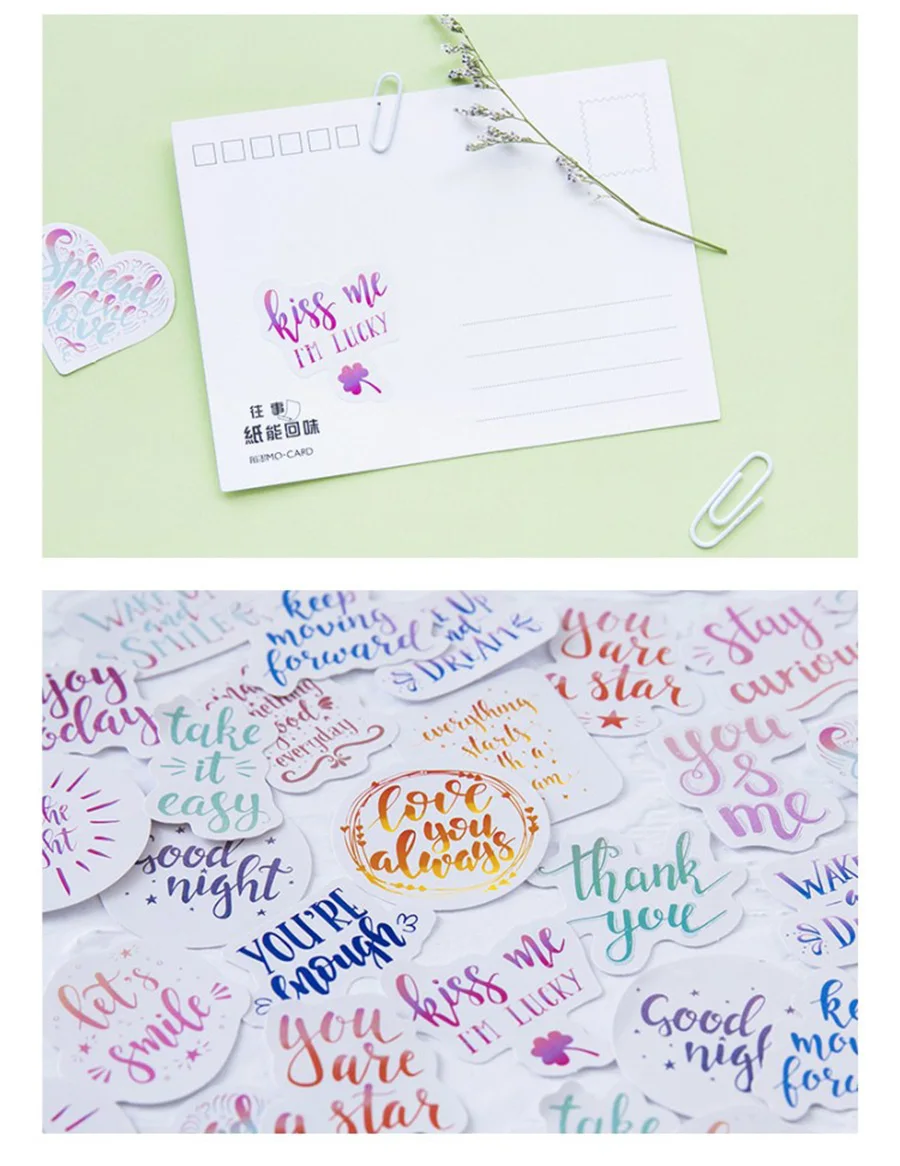 Spread
the
love
kiss me
I'M LUCKY
往事
紙能回味
MO-CARD
WAKE UP
and
SMILE
keep
moving
forward
UP
and
DREAM
you
are
a star
stay
curious
enjoy
today
take
it
easy
something
good
everyday
everything
starts
with a
dream
you
&
me
the
love
you
always
good
night
thank
you
WAKE
YOU'RE
enough
let's
smile
kiss me
I'M LUCKY
Good
night
keep
moving
forward
you
are
a star
take